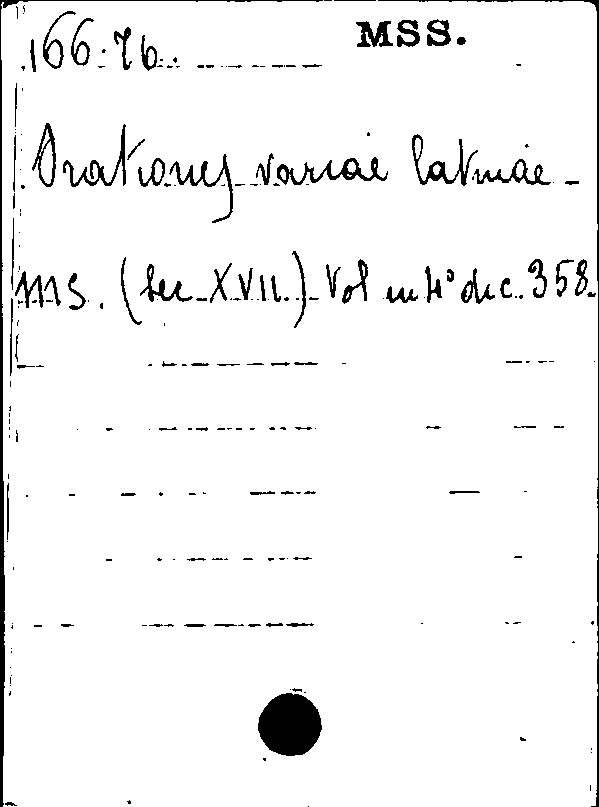 166.76. MSS.
Orationes variae latinae -
ms. (Sec. XVII.) Vol in 4° di c. 358.